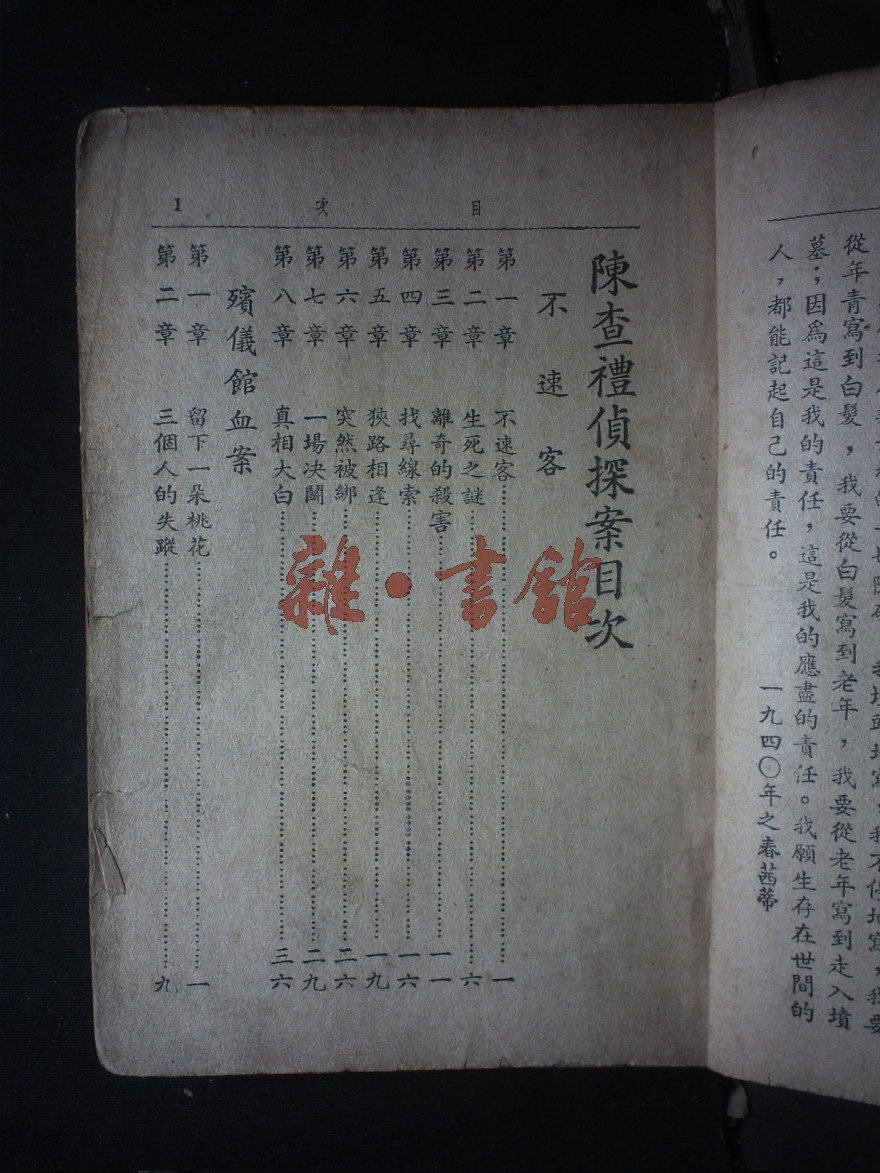 從年青寫到白髮，我要從白髮寫到老年，我要從老年寫到走入墳
墓；因爲這是我的責任，這是我的應盡的責任。我願生存在世間的
人，都能記起自己的責任。
一九四〇年之春茜蒂
目次 1
陳查禮偵探案目次
不速客
第一章 不速客……一
第二章 生死之謎……六
第三章 離奇的殺害……一一
第四章 找尋線索……一六
第五章 狹路相逢……一九
第六章 突然被綁……二六
第七章 一場決鬭……二九
第八章 真相大白……三六
殯儀館血案
第一章 留下一朵桃花……一
第二章 三個人的失蹤……九
雜·書館